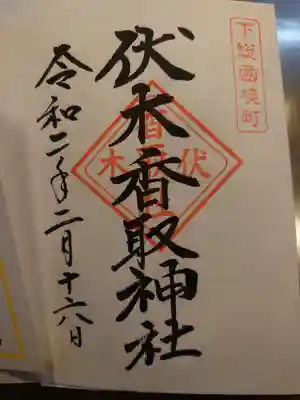 下総國境町
伏木香取神社
令和二年二月十六日